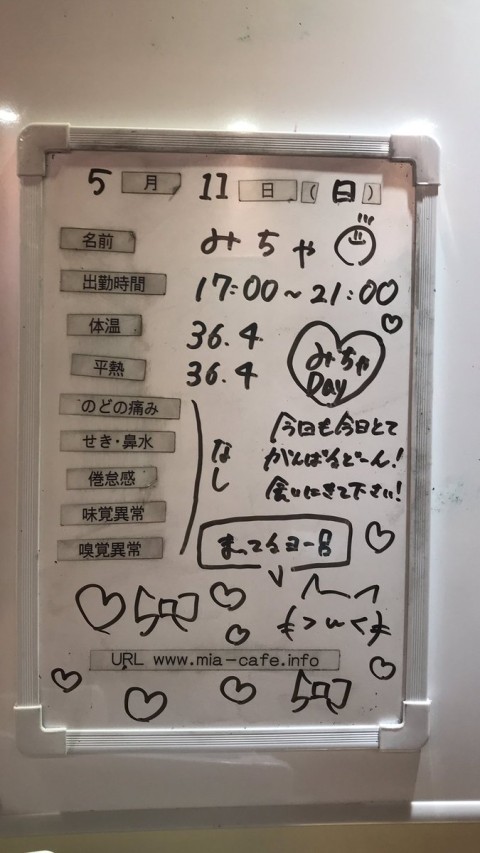 5 月 11 日 ( 日 )
名前 みちゃ
出勤時間 17:00~21:00
体温 36.4
平熱 36.4
みちゃ
Day
のどの痛み
せき・鼻水
倦怠感
味覚異常
嗅覚異常
なし
今日も今日とて
がんばるどーん!
会いにきて下さい!
まってるヨー
URL www.mia-cafe.info